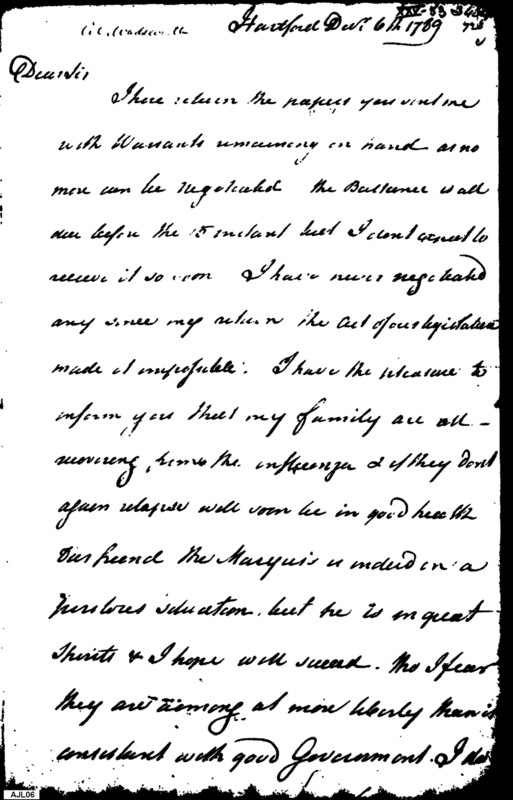 Hartford Decr 6th 1789
Dear sir
I here return the papers you sent me
with Warrants remaining on hand as no
more can be negotiated the Ballance is all
due before the 15 instant but I dont expect to
receive it so soon I have never negotiated
any since my return the Act of our legislature
made it impossible. I have the pleasure to
inform you that my family are all
recovering from the influenza & if they dont
again relapse will soon be in good health
Our friend the Marquis is indeed in a
perilous situation. but he is in great
Spirits & I hope will succeed. tho I fear
they are aiming at more liberty than is
consistent with good Government. I do
AJL06